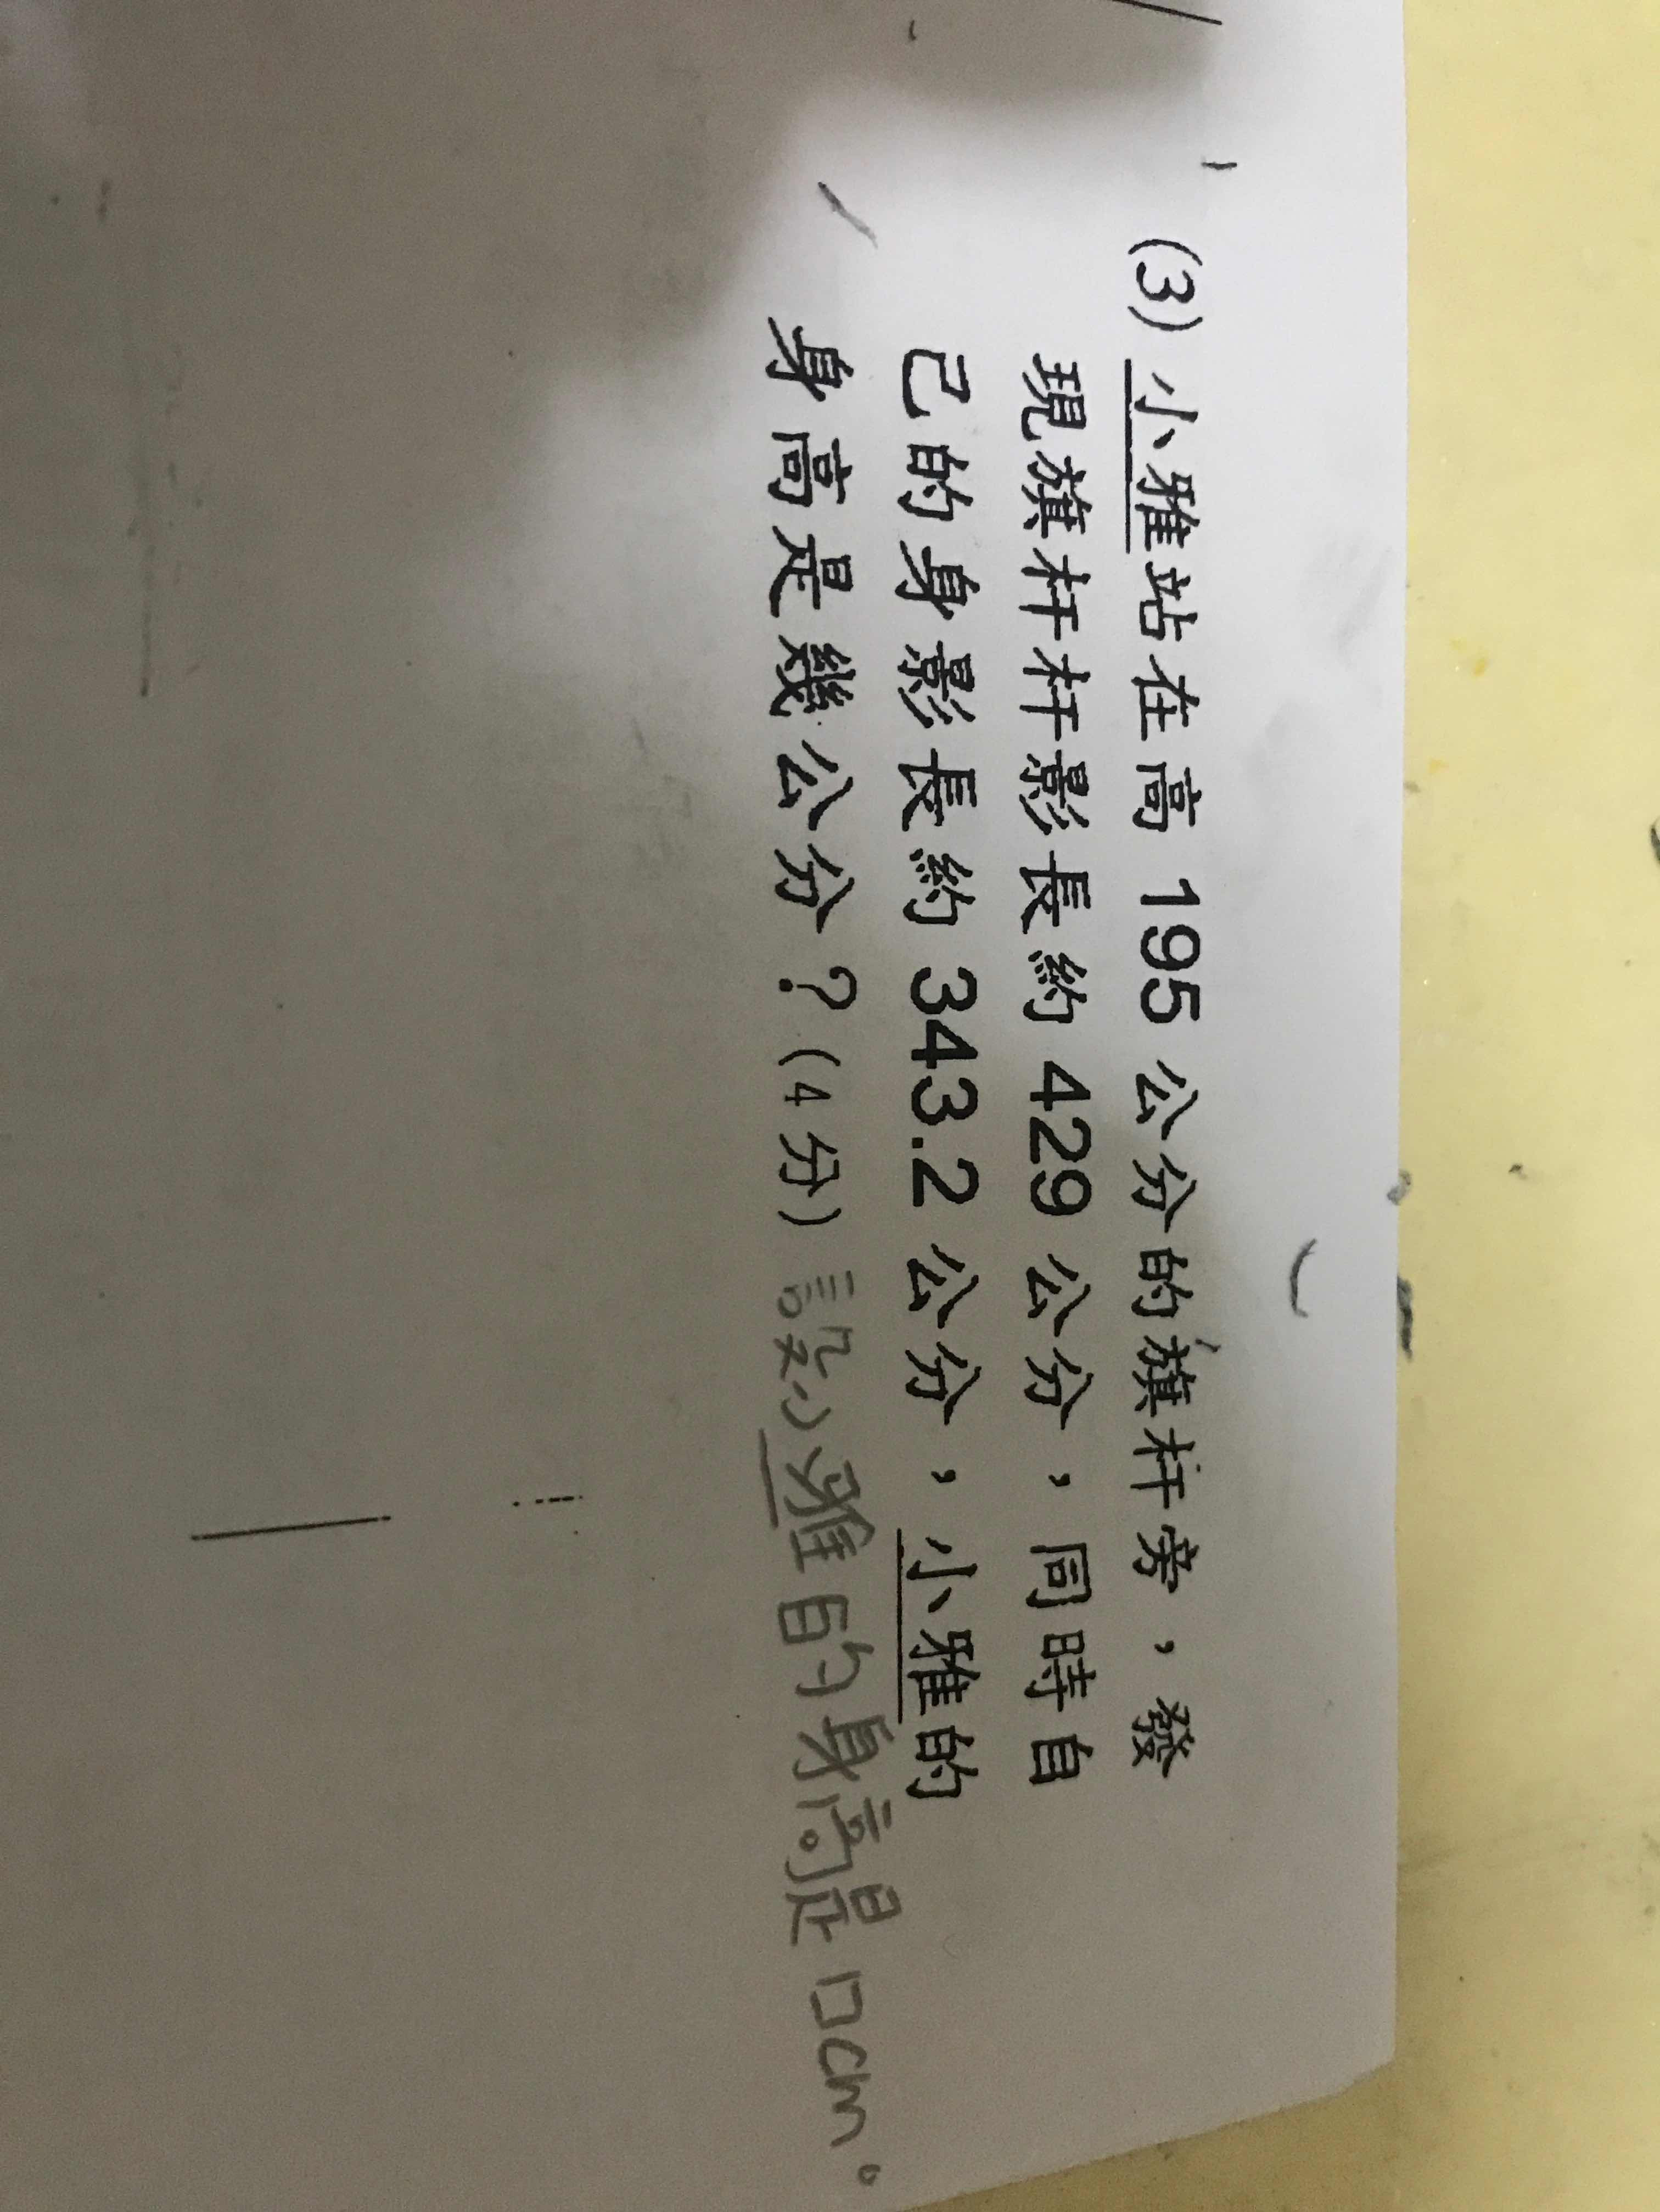 (3) 小雅站在高 195 公分的旗杆旁，發
現旗杆杆影長約 429 公分，同時自
己的身影長約 343.2 公分，小雅的
身高是幾公分？(4 分) 設小雅的身高是口cm。